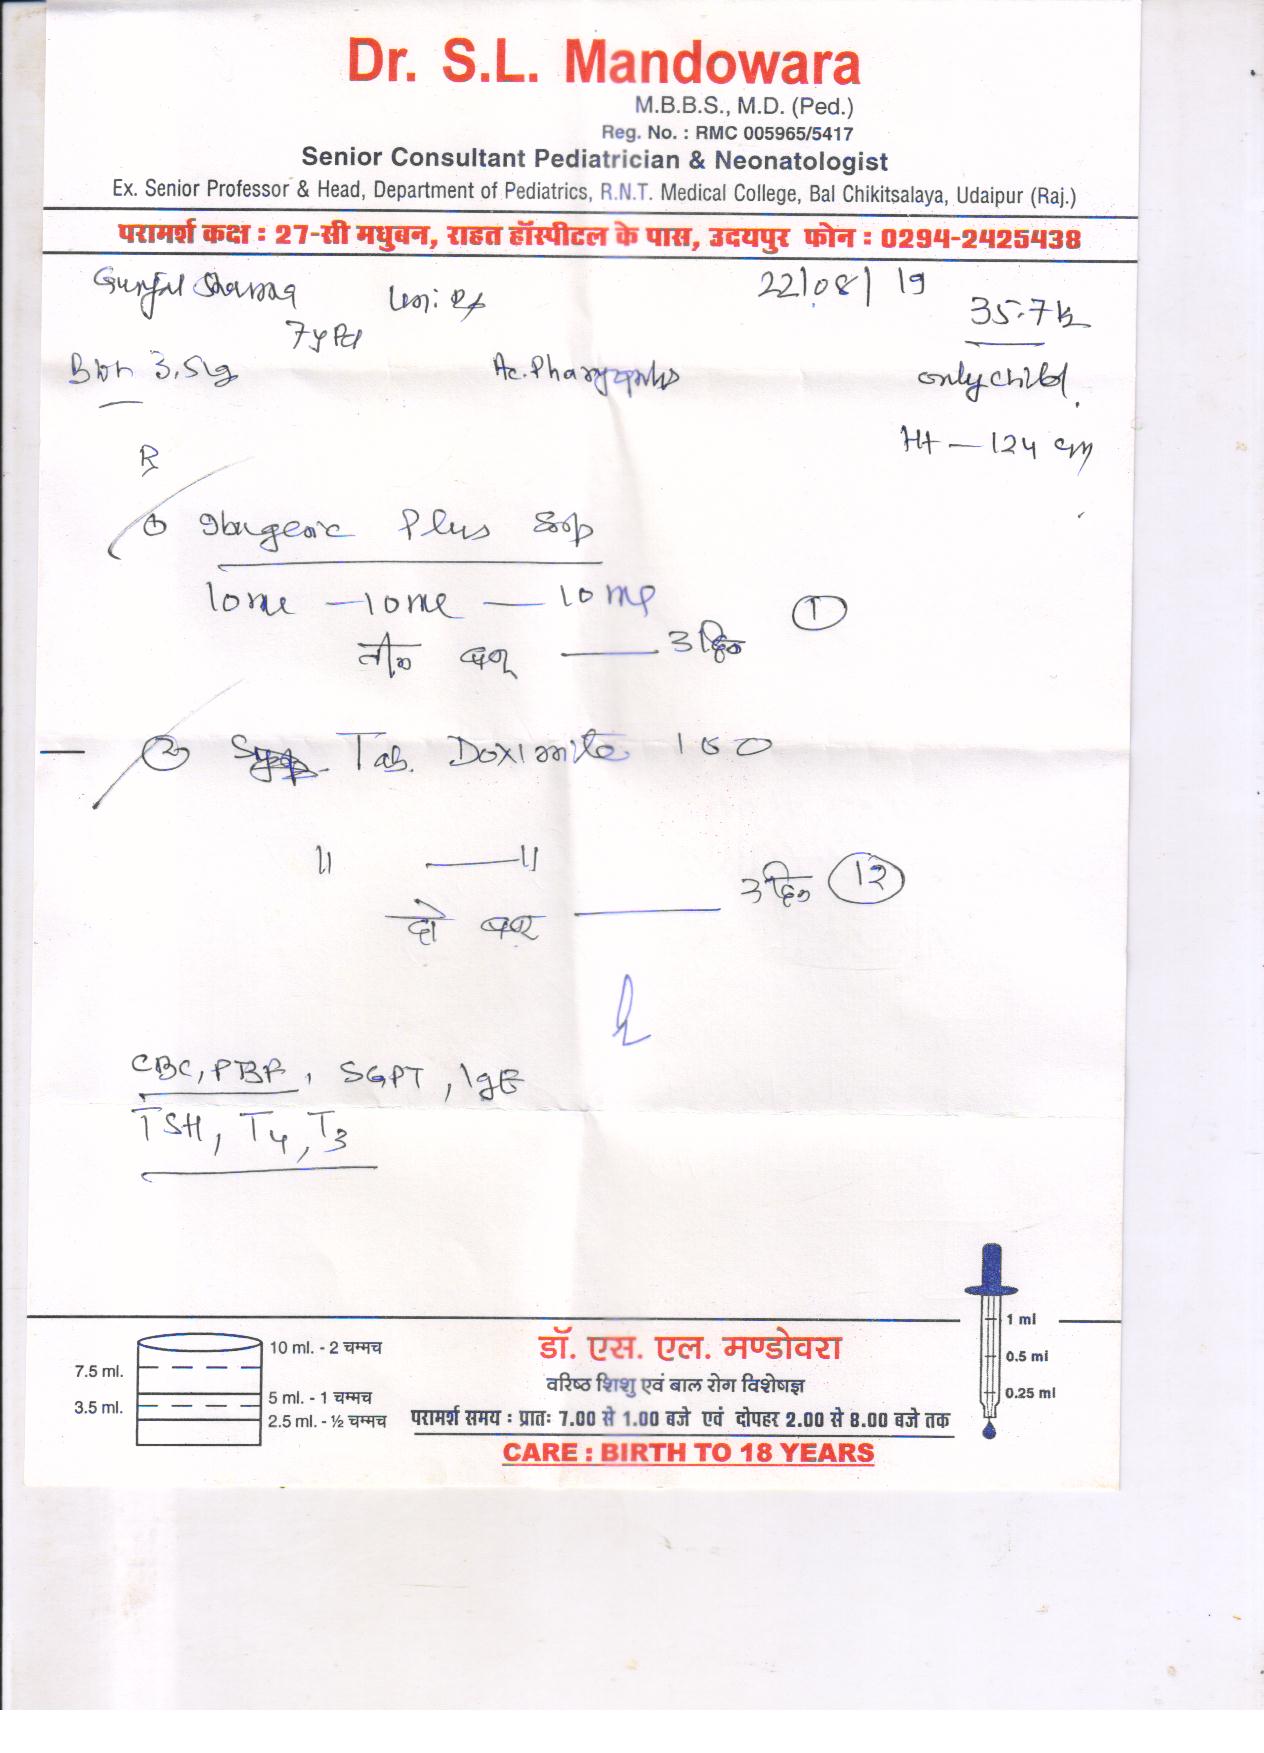 Dr. S.L. Mandowara
M.B.B.S., M.D. (Ped.)
Reg. No. : RMC 005965/5417
Senior Consultant Pediatrician & Neonatologist
Ex. Senior Professor & Head, Department of Pediatrics, R.N.T. Medical College, Bal Chikitsalaya, Udaipur (Raj.)
परामर्श कक्ष : 27-सी मधुबन, राहत हॉस्पीटल के पास, उदयपुर फोन : 0294-2425438
Sharma 22/08/19
35.7k
7y
3.5kg Ac. only child.
Ht — 124 cm
R
① Plus
10ml — 10ml — 10ml ①
तीन बार — 3 दिन
② Tab. 100
॥ — ॥
3 दिन १२
दो बार —
CBC, PBF, SGPT, IgE
TSH, T4, T3
1 ml
0.5 ml
0.25 ml
10 ml. - 2 चम्मच
7.5 ml.
5 ml. - 1 चम्मच
3.5 ml.
2.5 ml. - ½ चम्मच
डॉ. एस. एल. मण्डोवरा
वरिष्ठ शिशु एवं बाल रोग विशेषज्ञ
परामर्श समय : प्रातः 7.00 से 1.00 बजे एवं दोपहर 2.00 से 8.00 बजे तक
CARE : BIRTH TO 18 YEARS